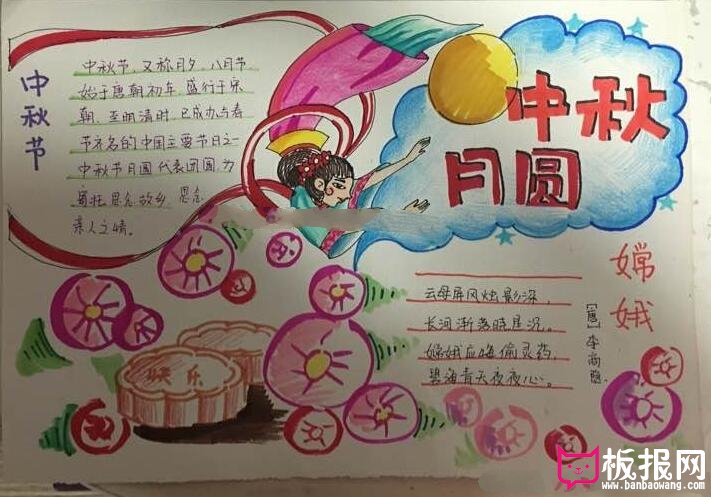 中秋节
中秋节、又称月夕、八月节
始于唐朝初年 盛行于宋
朝、至明清时、已成为与春
节齐名的中国主要节日之一
中秋节月圆代表团圆,为
寄托思念故乡 思念
亲人之情。
中秋
月圆
嫦娥
[唐]李商隐
云母屏风烛影深,
长河渐落晓星沉。
嫦娥应悔偷灵药,
碧海青天夜夜心。
快乐
板报网
www.banbaowang.com